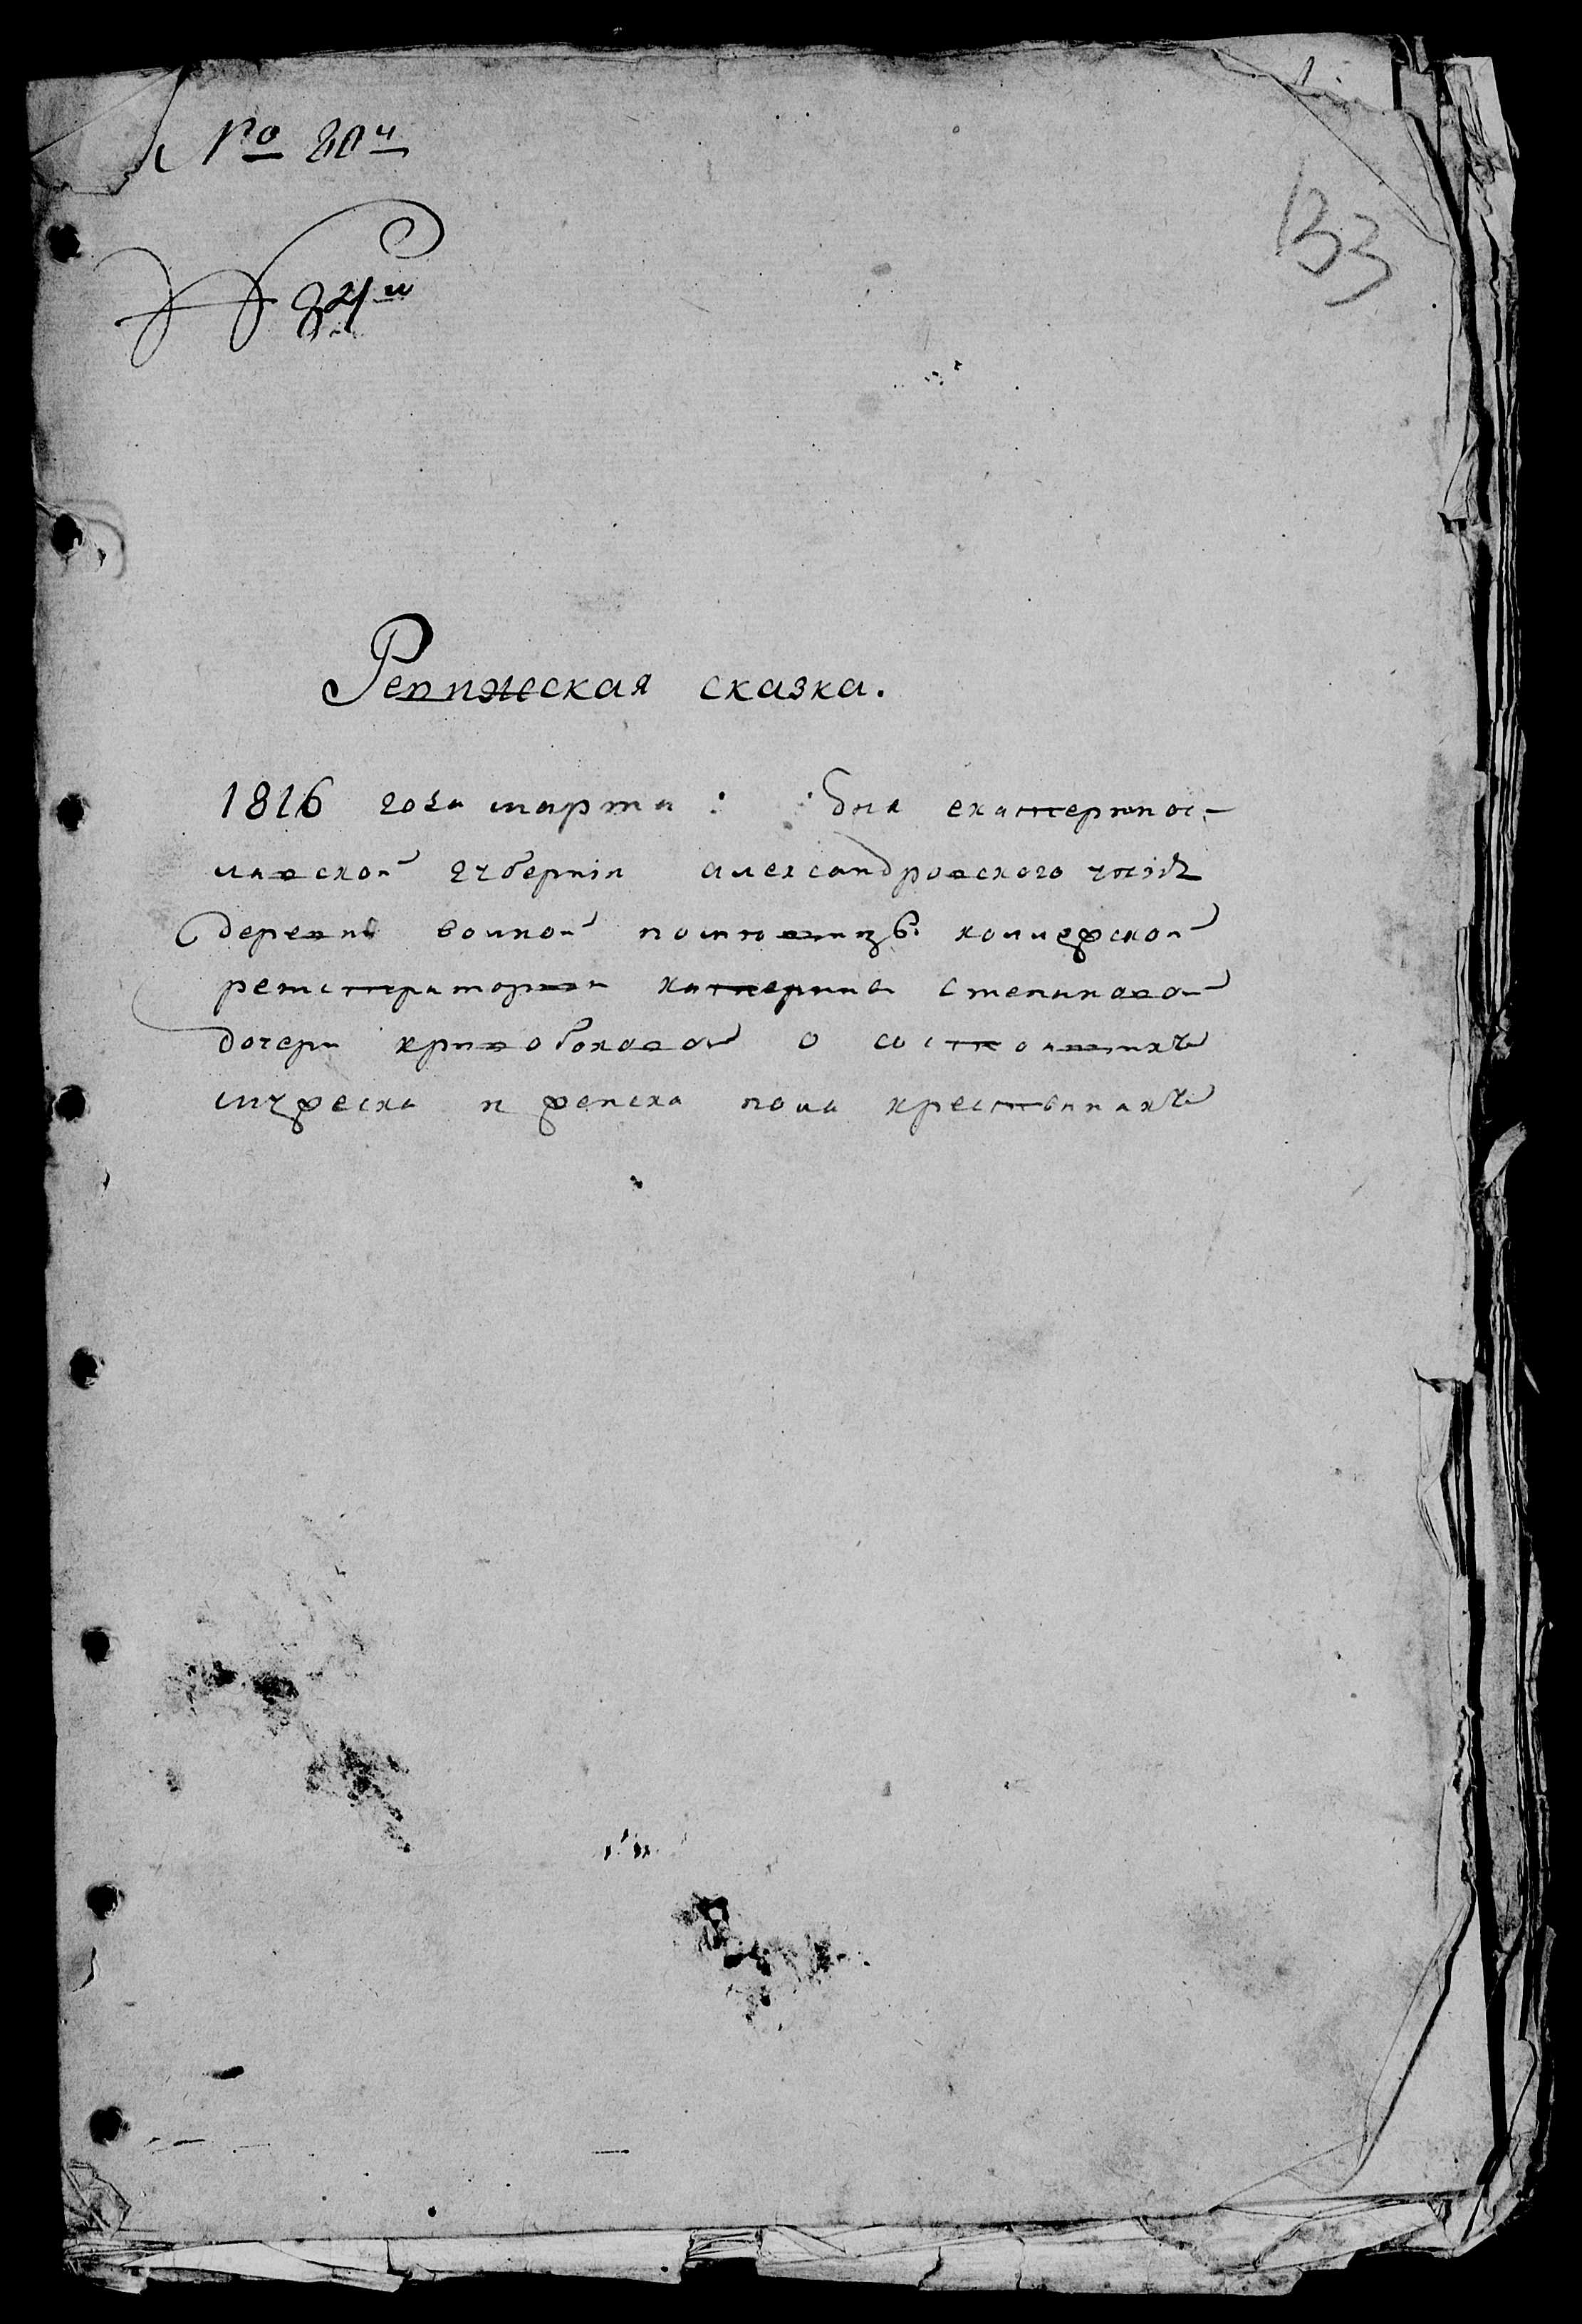 № 80й
1
133
№ 84й
Ревижская сказка.
1816 года марта : дня екатеринос-
лавской губернiи александровского уезда
деревни волной помещицы коллежской
регистраторши катерины степановой
дочери кривобоковой о состоящихъ
мужеска и женска пола крестьянахъ